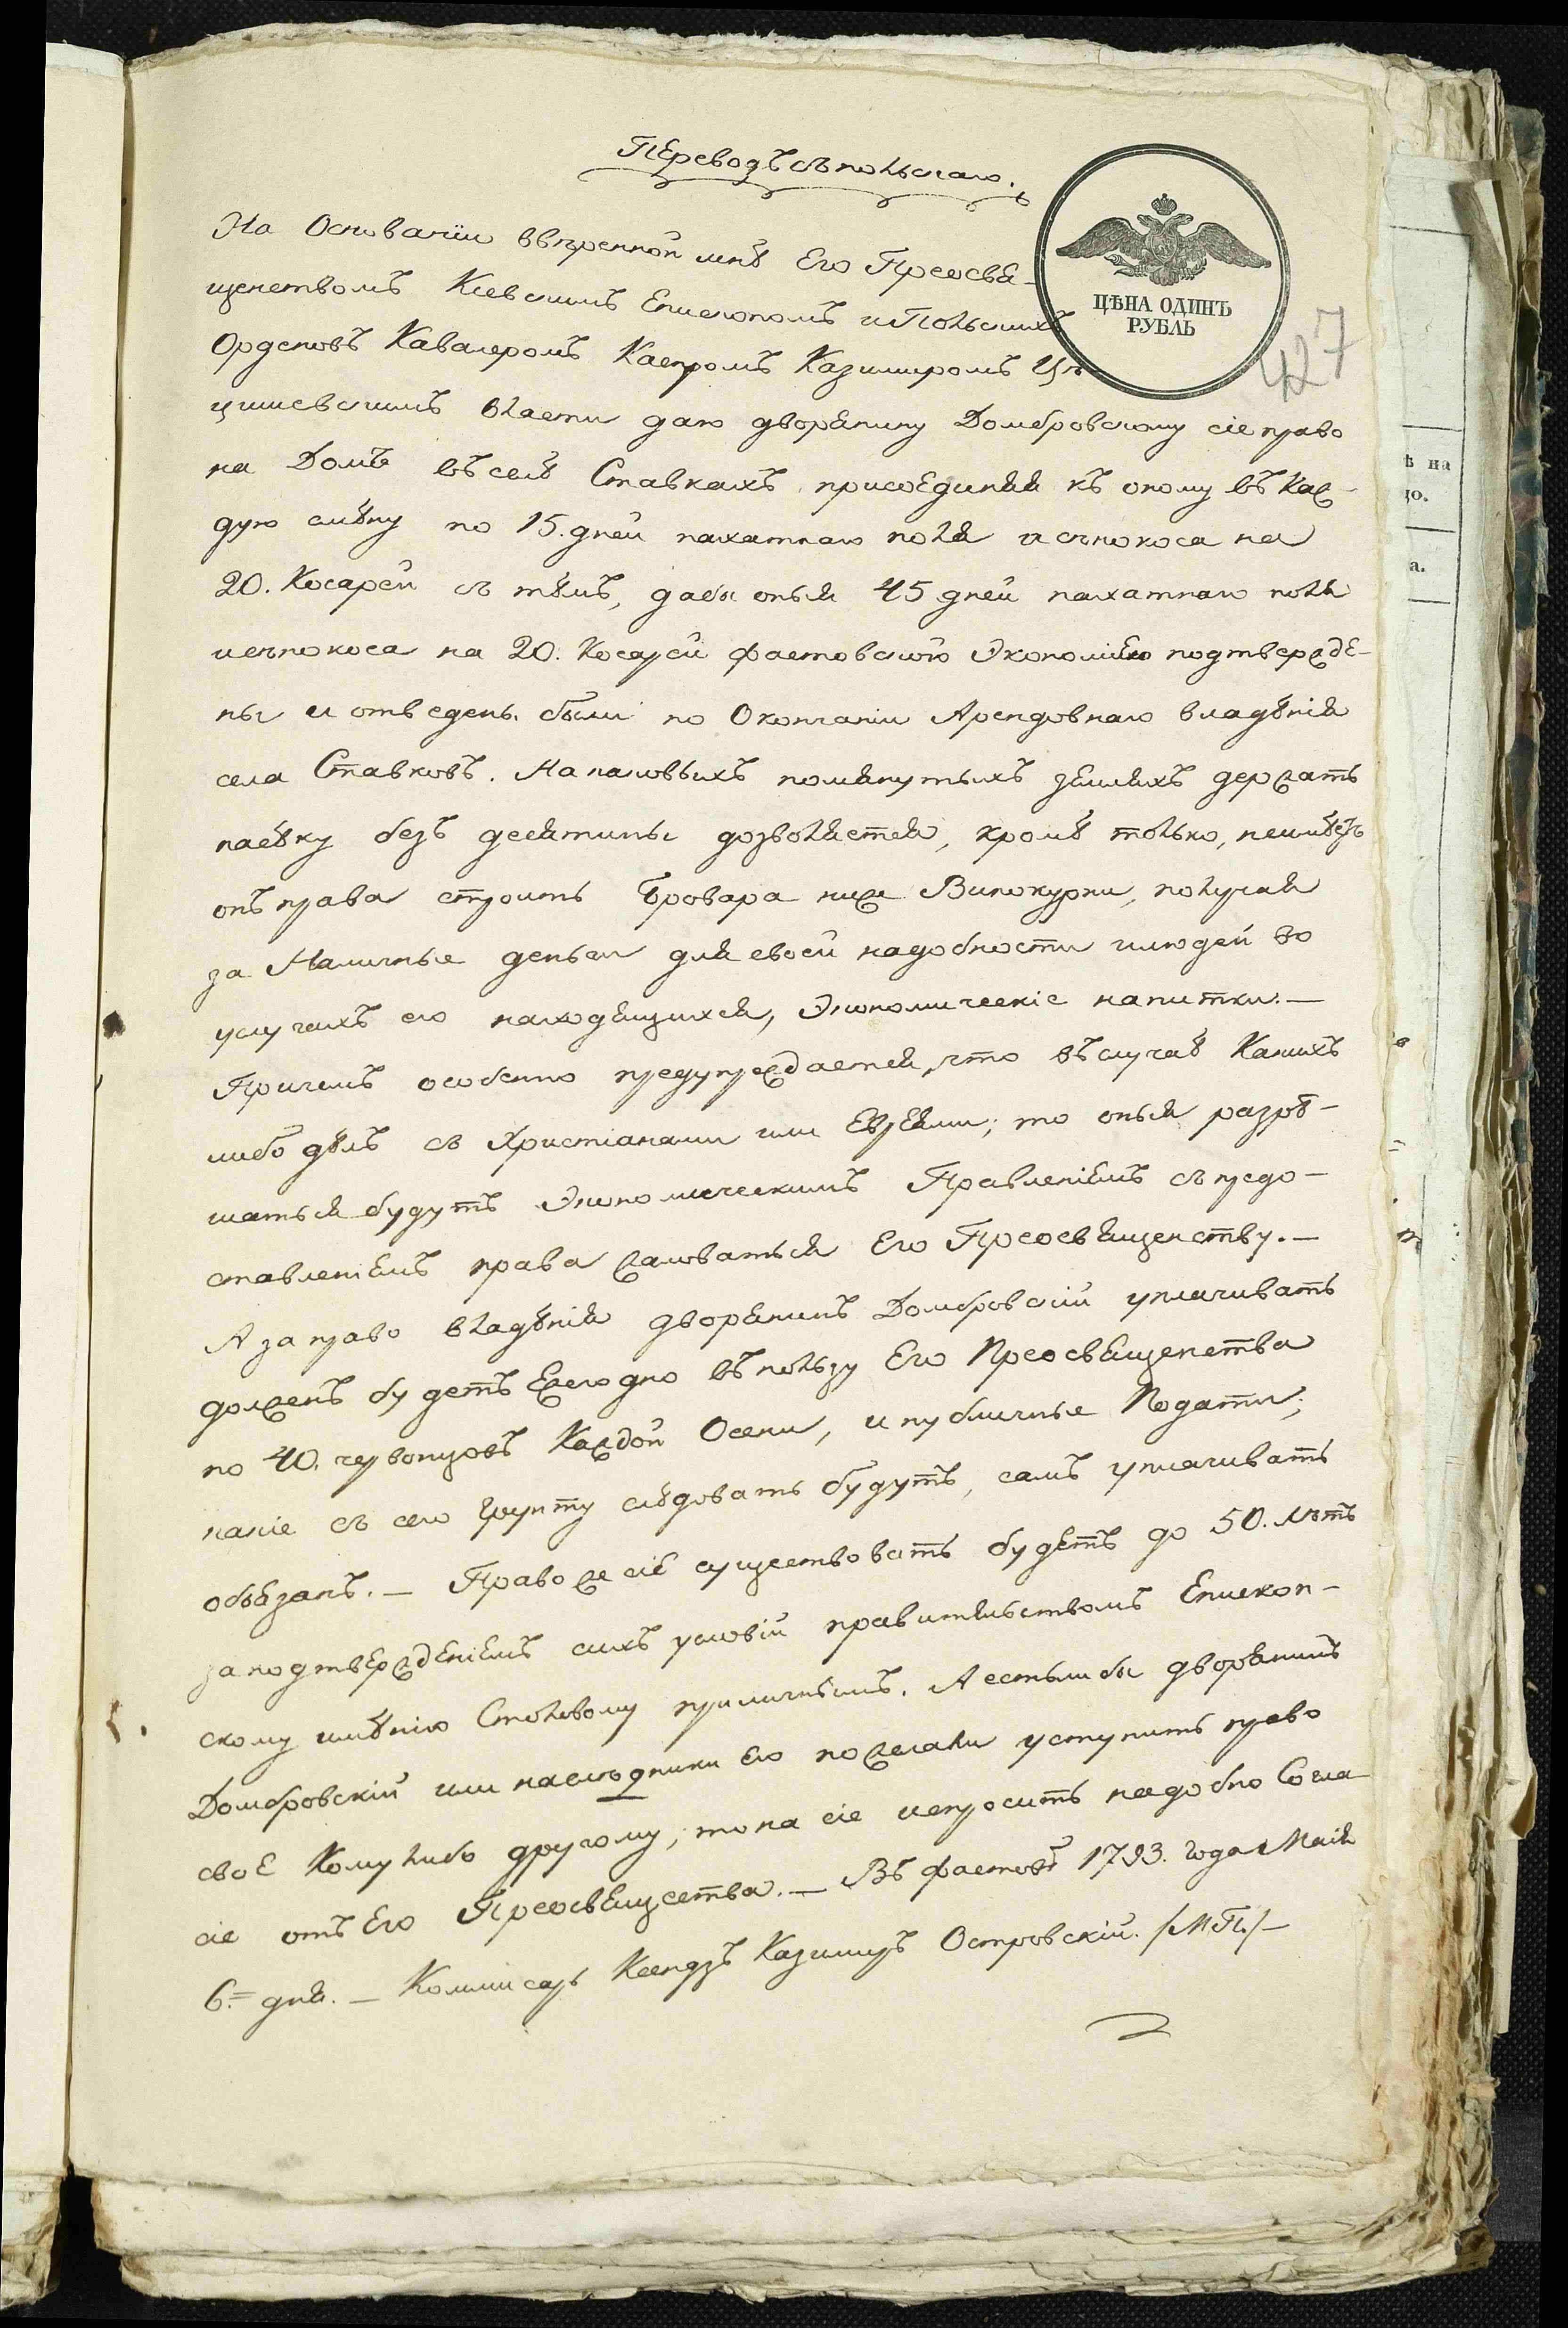 Переводъ съ польскаго.
ЦѢНА ОДИНЪ
РУБЛЬ
427
На Основаніи ввѣренной мнѣ Его Преосвя-
щенствомъ Кіевскимъ Епископомъ и Польскихъ
Орденовъ Кавалеромъ Каспромъ Казимиромъ Цѣ-
цишевскимъ власти даю дворянину Домбровскому сіе право
на Домъ въ селѣ Ставкахъ, присоединяя къ оному въ каж-
дую смѣну по 15. дней пахатнаго поля и сѣнокоса на
20. Косарей съ тѣмъ, дабы оныя 45 дней пахатнаго поля
исѣнокоса на 20. Косарей фастовскою Экономіею подтвержде-
ны и отведены были по Окончаніи Арендовнаго владѣнія
села Ставковъ. На таковыхъ помянутыхъ земляхъ держать
пасѣку безъ десятины дозволяется, кромѣ только, неимѣетъ
онъ права строить Бровара ниже Винокурни, получая
за Наличные деньги для своей надобности илюдей во
услугахъ его находящихся, Экономическіе напитки. —
Причемъ особенно предупреждается, что въ случаѣ Какихъ
либо дѣлъ съ Христіанами или Евреями; то оныя разрѣ-
шаться будутъ Экономическимъ Правленіемъ съ предо-
ставленіемъ права жаловаться Его Преосвященству. —
А за право владѣнія дворянинъ Домбровскій уплачивать
долженъ будетъ Ежегодно въ пользу Его Преосвященства
по 40. червонцовъ Каждой Осени, и публичные Подати;
какіе съ сего Грунту слѣдовать будутъ, самъ уплачивать
обязанъ. — Право же сіе существовать будетъ до 50. лѣтъ
за подтвержденіемъ сихъ условій правительствомъ Епископ-
скому имѣнію Столовому приличнымъ. А естьли бы дворянинъ
Домбровскій или наслѣдники его пожелали уступить право
своё Кому либо другому, то на сіе испросить надобно Согла-
сіе отъ Его Преосвященства. — Въ фастовѣ 1793. года Маія
6.= дня. — Коммисаръ Ксендзъ Казимиръ Островскій. /М.П./ —